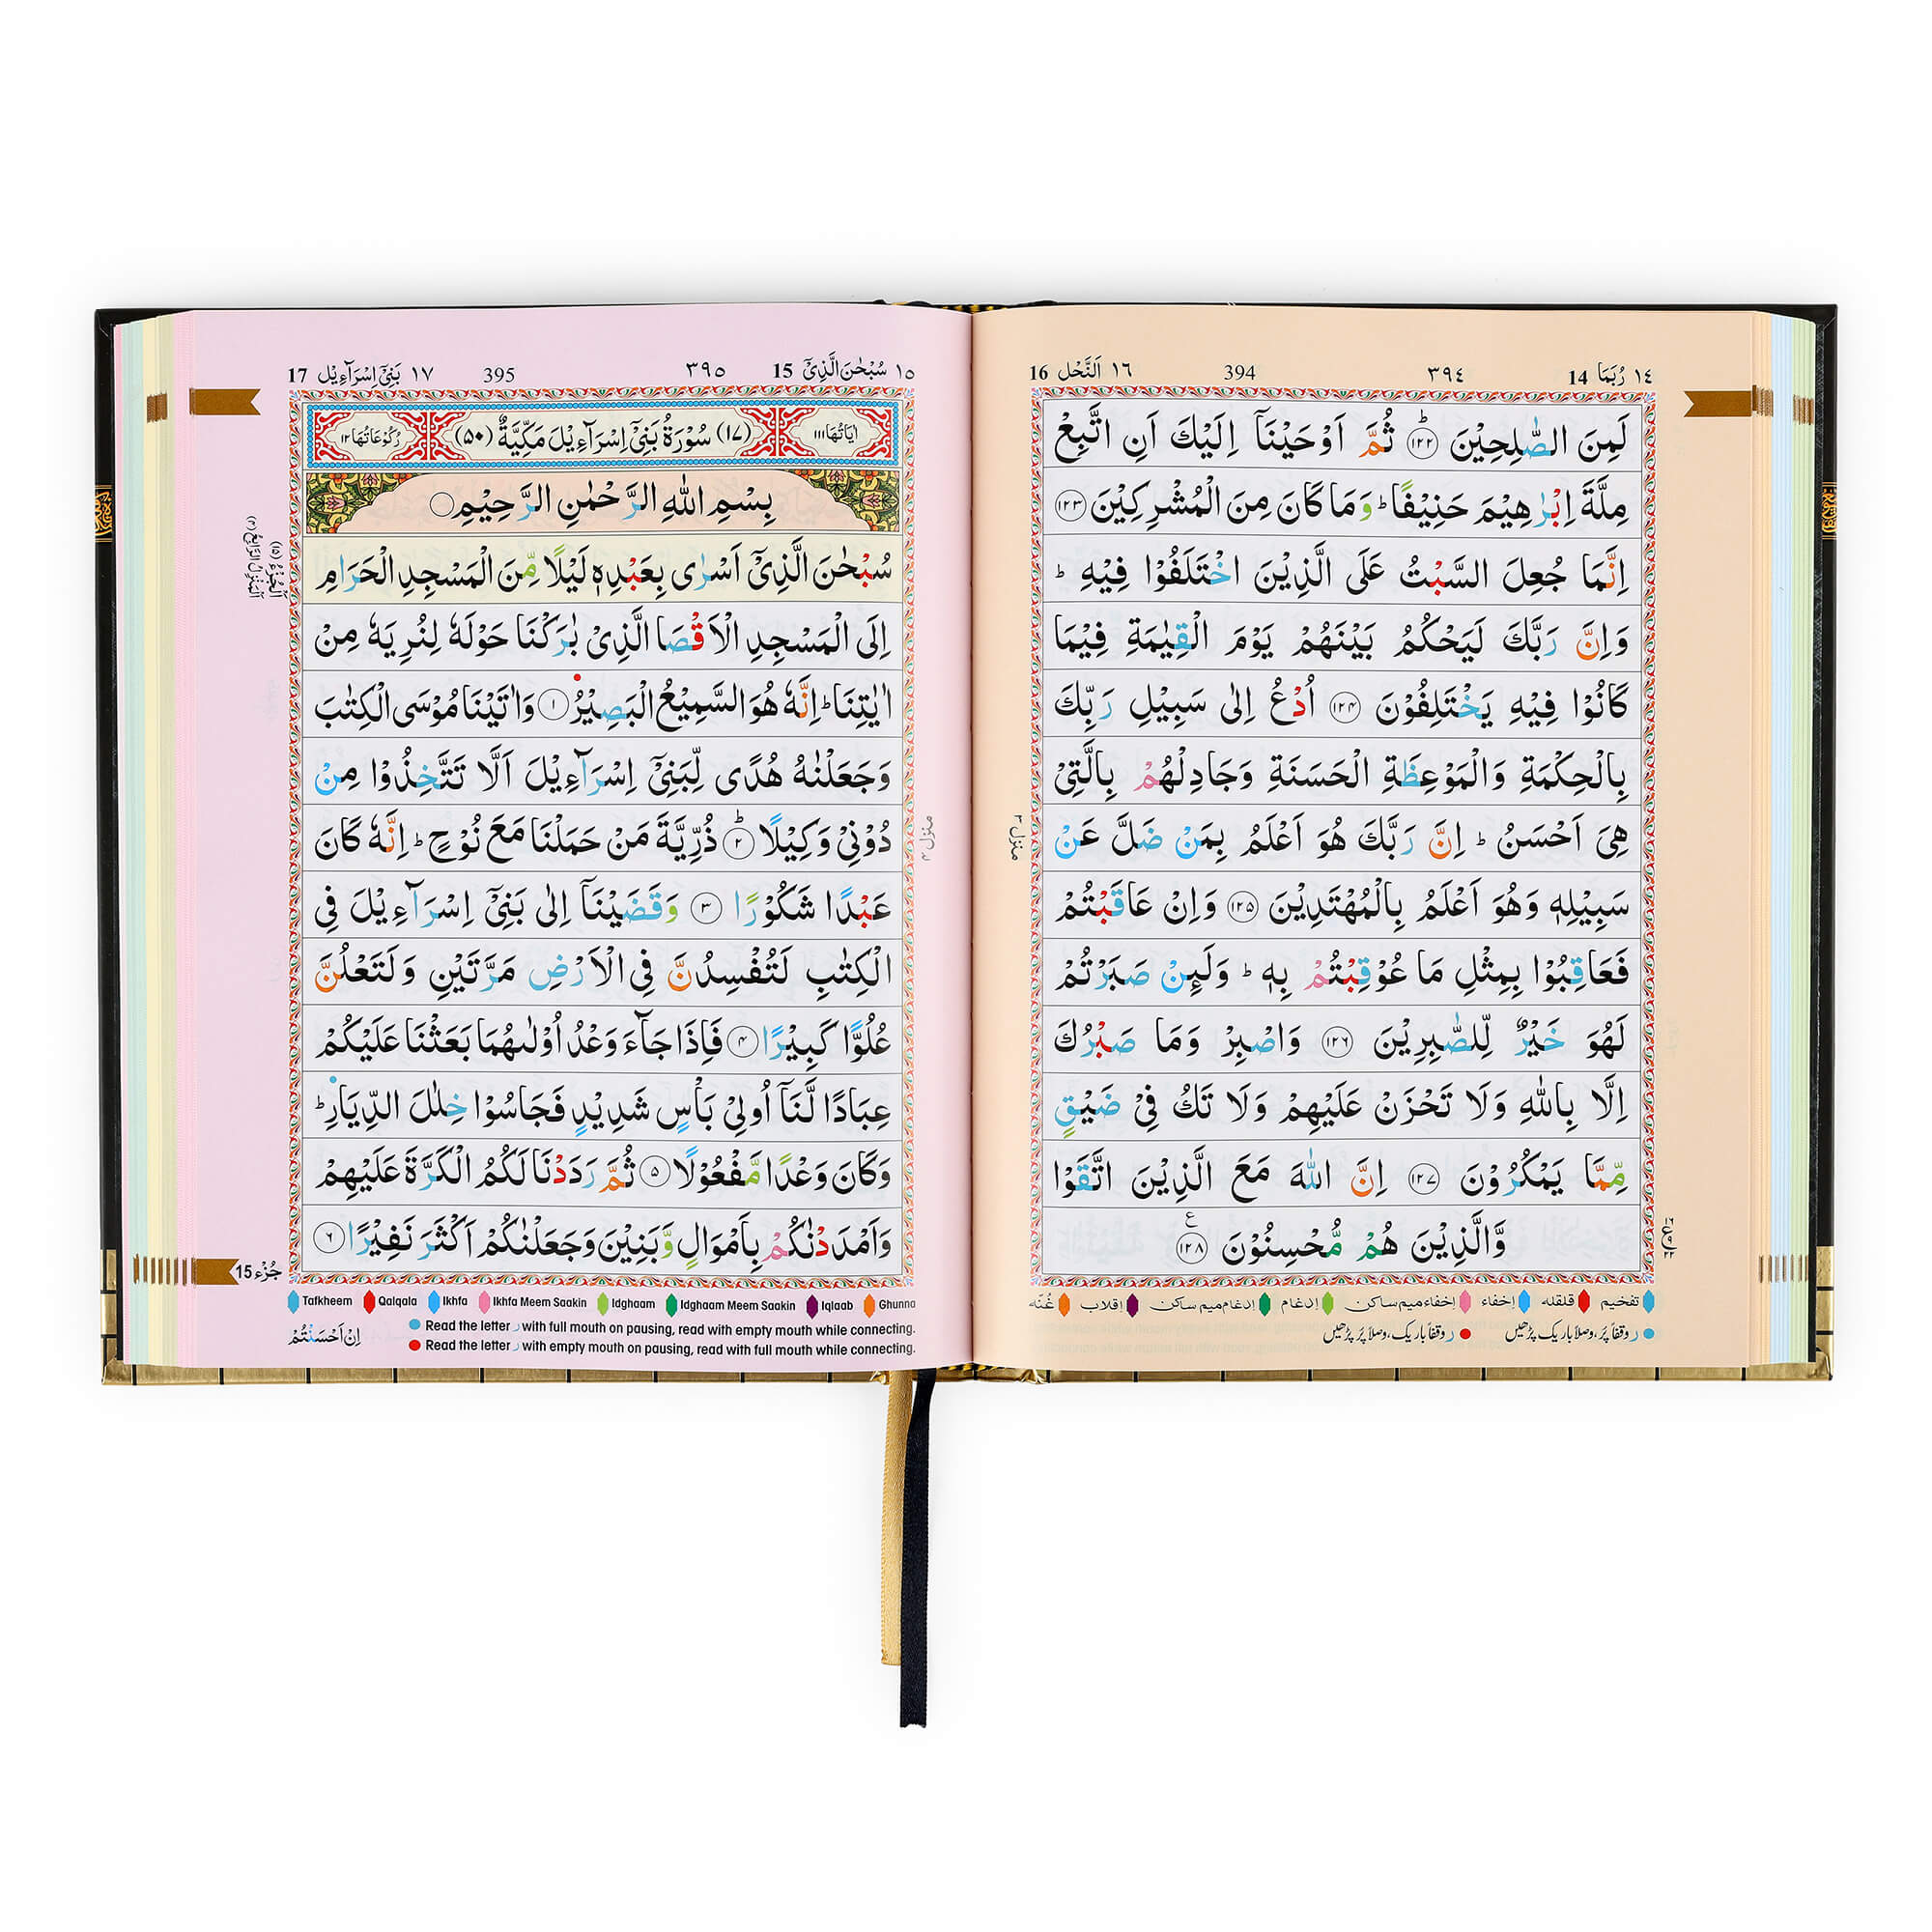 ١٤ رُبَمَا 14 ٣٩٤ 394 ١٦ اَلنَّحْل 16
لَمِنَ الصّٰلِحِيْنَ ؕ ﴿١٢٢﴾ ثُمَّ اَوْحَيْنَاۤ اِلَيْكَ اَنِ اتَّبِعْ
مِلَّةَ اِبْرٰهِيْمَ حَنِيْفًا ؕ وَمَا كَانَ مِنَ الْمُشْرِكِيْنَ ﴿١٢٣﴾
اِنَّمَا جُعِلَ السَّبْتُ عَلَى الَّذِيْنَ اخْتَلَفُوْا فِيْهِ ؕ
وَاِنَّ رَبَّكَ لَيَحْكُمُ بَيْنَهُمْ يَوْمَ الْقِيٰمَةِ فِيْمَا
كَانُوْا فِيْهِ يَخْتَلِفُوْنَ ﴿١٢٤﴾ اُدْعُ اِلٰى سَبِيْلِ رَبِّكَ
بِالْحِكْمَةِ وَالْمَوْعِظَةِ الْحَسَنَةِ وَجَادِلْهُمْ بِالَّتِيْ
هِيَ اَحْسَنُ ؕ اِنَّ رَبَّكَ هُوَ اَعْلَمُ بِمَنْ ضَلَّ عَنْ
سَبِيْلِهٖ وَهُوَ اَعْلَمُ بِالْمُهْتَدِيْنَ ﴿١٢٥﴾ وَاِنْ عَاقَبْتُمْ
فَعَاقِبُوْا بِمِثْلِ مَا عُوْقِبْتُمْ بِهٖ ؕ وَلَىِٕنْ صَبَرْتُمْ
لَهُوَ خَيْرٌ لِّلصّٰبِرِيْنَ ﴿١٢٦﴾ وَاصْبِرْ وَمَا صَبْرُكَ
اِلَّا بِاللّٰهِ وَلَا تَحْزَنْ عَلَيْهِمْ وَلَا تَكُ فِيْ ضَيْقٍ
مِّمَّا يَمْكُرُوْنَ ﴿١٢٧﴾ اِنَّ اللّٰهَ مَعَ الَّذِيْنَ اتَّقَوْا
وَّالَّذِيْنَ هُمْ مُّحْسِنُوْنَ ﴿١٢٨﴾ ع
منزل ٣
تفخيم قلقله إخفاء إخفاء ميم ساكن إدغام إدغام ميم ساكن إقلاب غُنّه
ر وقفاً پُر، وصلاً باریک پڑھیں ر وقفاً باریک، وصلاً پُر پڑھیں
١٥ سُبْحٰنَ الَّذِيْۤ 15 ٣٩٥ 395 ١٧ بَنِيْۤ اِسْرَآءِيْل 17
اٰيَاتُهَا ١١١ (١٧) سُوْرَةُ بَنِيْۤ اِسْرَآءِيْلَ مَكِّيَّةٌ (٥٠) رُكُوْعَاتُهَا ١٢
بِسْمِ اللّٰهِ الرَّحْمٰنِ الرَّحِيْمِ
سُبْحٰنَ الَّذِيْۤ اَسْرٰى بِعَبْدِهٖ لَيْلًا مِّنَ الْمَسْجِدِ الْحَرَامِ
اِلَى الْمَسْجِدِ الْاَقْصَا الَّذِيْ بٰرَكْنَا حَوْلَهٗ لِنُرِيَهٗ مِنْ
اٰيٰتِنَا ؕ اِنَّهٗ هُوَ السَّمِيْعُ الْبَصِيْرُ ﴿١﴾ وَاٰتَيْنَا مُوْسَى الْكِتٰبَ
وَجَعَلْنٰهُ هُدًى لِّبَنِيْۤ اِسْرَآءِيْلَ اَلَّا تَتَّخِذُوْا مِنْ
دُوْنِيْ وَكِيْلًا ؕ ﴿٢﴾ ذُرِّيَّةَ مَنْ حَمَلْنَا مَعَ نُوْحٍ ؕ اِنَّهٗ كَانَ
عَبْدًا شَكُوْرًا ﴿٣﴾ وَقَضَيْنَاۤ اِلٰى بَنِيْۤ اِسْرَآءِيْلَ فِي
الْكِتٰبِ لَتُفْسِدُنَّ فِي الْاَرْضِ مَرَّتَيْنِ وَلَتَعْلُنَّ
عُلُوًّا كَبِيْرًا ﴿٤﴾ فَاِذَا جَآءَ وَعْدُ اُوْلٰىهُمَا بَعَثْنَا عَلَيْكُمْ
عِبَادًا لَّنَاۤ اُولِيْ بَاْسٍ شَدِيْدٍ فَجَاسُوْا خِلٰلَ الدِّيَارِ ؕ
وَكَانَ وَعْدًا مَّفْعُوْلًا ﴿٥﴾ ثُمَّ رَدَدْنَا لَكُمُ الْكَرَّةَ عَلَيْهِمْ
وَاَمْدَدْنٰكُمْ بِاَمْوَالٍ وَّبَنِيْنَ وَجَعَلْنٰكُمْ اَكْثَرَ نَفِيْرًا ﴿٦﴾
اَلْجُزْءُ (١٥)
اَلْمَنْزِلُ الرَّابِعُ (٤)
منزل ٤
جُزْء 15
Tafkheem Qalqala Ikhfa Ikhfa Meem Saakin Idghaam Idghaam Meem Saakin Iqlaab Ghunna
Read the letter ر with full mouth on pausing, read with empty mouth while connecting.
Read the letter ر with empty mouth on pausing, read with full mouth while connecting.
اِنْ اَحْسَنْتُمْ